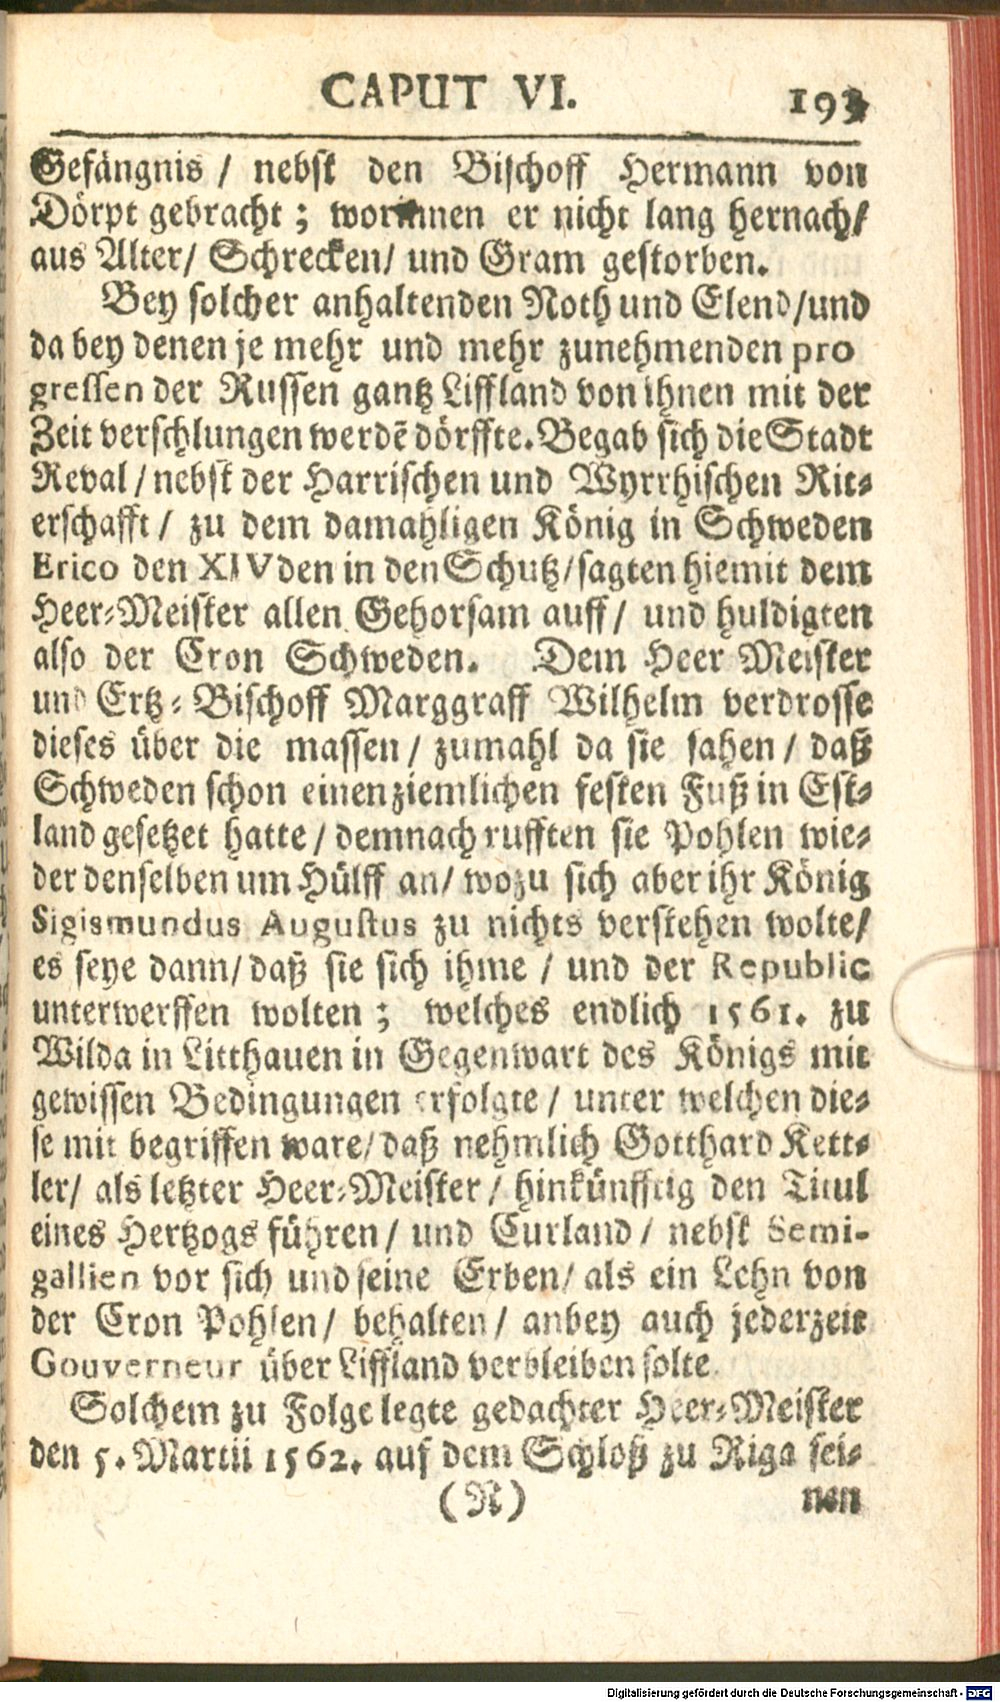 CAPUT VI. 193
Gefängnis / nebst den Bischoff Hermann von
Dörpt gebracht ; worinnen er nicht lang hernach/
aus Alter/ Schrecken/ und Gram gestorben.
Bey solcher anhaltenden Noth und Elend/und
da bey denen je mehr und mehr zunehmenden pro
gressen der Russen gantz Liffland von ihnen mit der
Zeit verschlungen werdē dörffte. Begab sich die Stadt
Reval / nebst der Harrischen und Wyrrhischen Rit-
erschafft / zu dem damahligen König in Schweden
Erico den XIVden in den Schutz/sagten hiemit dem
Heer-Meister allen Gehorsam auff / und huldigten
also der Cron Schweden. Dem Heer Meister
und Ertz-Bischoff Marggraff Wilhelm verdrosse
dieses über die massen / zumahl da sie sahen / daß
Schweden schon einen ziemlichen festen Fuß in Est-
land gesetzet hatte / demnach rufften sie Pohlen wie-
der denselben um Hülff an/ wozu sich aber ihr König
Sigismundus Augustus zu nichts verstehen wolte/
es seye dann/ daß sie sich ihme / und der Republic
unterwerffen wolten ; welches endlich 1561. zu
Wilda in Litthauen in Gegenwart des Königs mit
gewissen Bedingungen erfolgte / unter welchen die-
se mit begriffen ware/ daß nehmlich Gotthard Kett-
ler/ als letzter Heer-Meister / hinkünfftig den Titul
eines Hertzogs führen / und Curland / nebst Semi-
gallien vor sich und seine Erben/ als ein Lehn von
der Cron Pohlen/ behalten / anbey auch jederzeit
Gouverneur über Liffland verbleiben solte.
Solchem zu Folge legte gedachter Heer-Meister
den 5. Martii 1562. auf dem Schloß zu Riga sei-
(N) nen
Digitalisierung gefördert durch die Deutsche Forschungsgemeinschaft - DFG